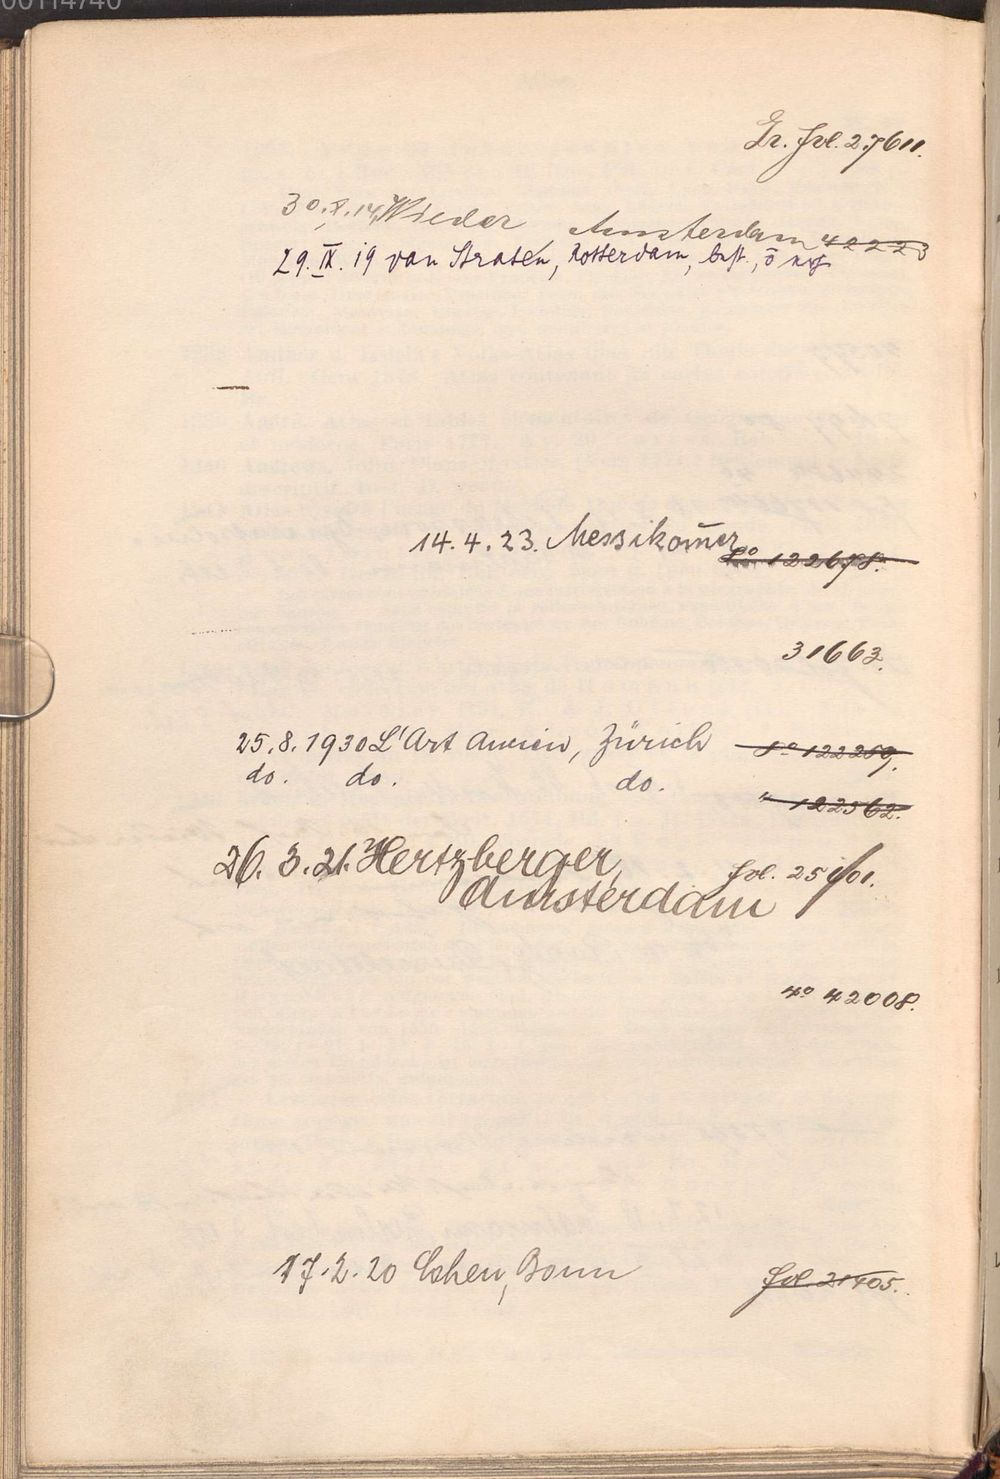 00114740
Gr. Fol. 27611.
30. X. 14, Wieder, Amsterdam 42223
29. IX. 19 van Straten, Rotterdam, best., ō
14. 4. 23. Messikom̄er
8° 122678.
31663.
25. 8. 1930 L'Art Ancien, Zürich 8° 122259.
do. do. do.
" 122362.
26. 3. 21. Hertzberger, Fol. 25101.
Amsterdam
4° 42008.
17. 2. 20 Cohen, Bonn Fol. 21405.